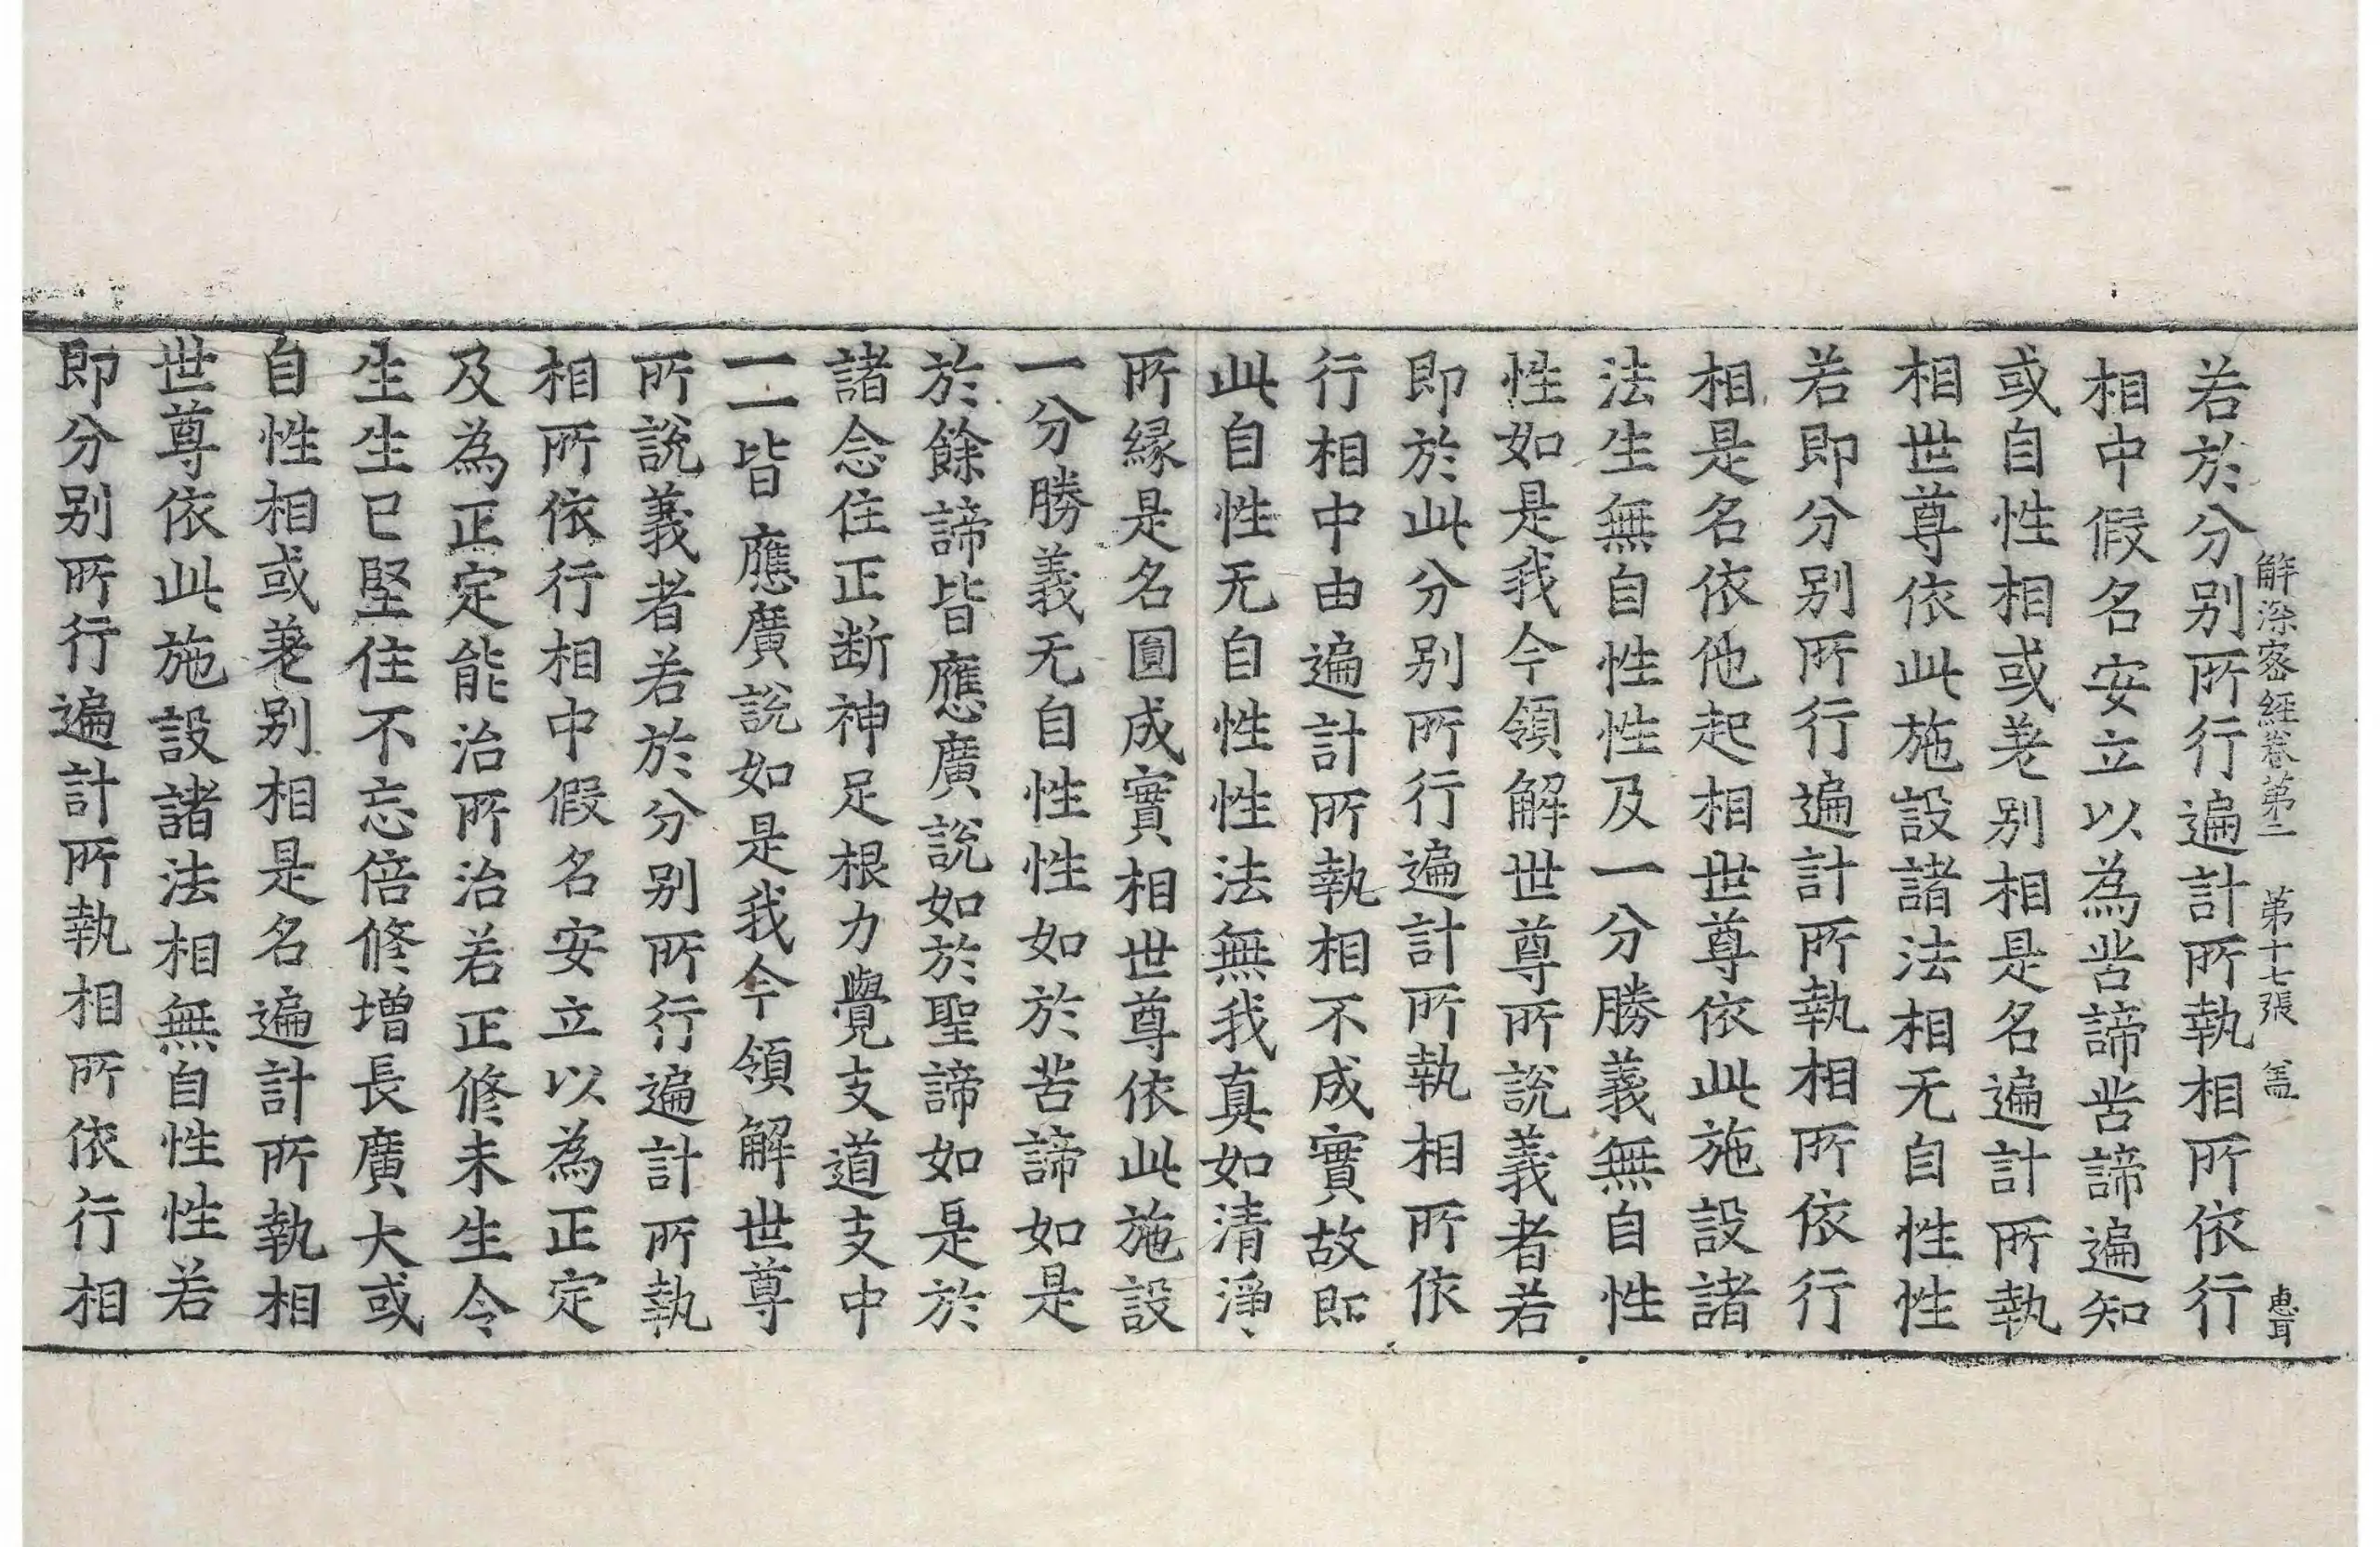 解深密經卷第二　第十七張　盖　惠耳
若於分别所行遍計所執相所依行
相中假名安立以為苦諦苦諦遍知
或自性相或差别相是名遍計所執
相世尊依此施設諸法相无自性性
若即分别所行遍計所執相所依行
相是名依他起相世尊依此施設諸
法生無自性性及一分勝義無自性
性如是我今領解世尊所說義者若
即於此分别所行遍計所執相所依
行相中由遍計所執相不成實故即
此自性无自性性法無我真如清淨
所緣是名圓成實相世尊依此施設
一分勝義无自性性如於苦諦如是
於餘諦皆應廣說如於聖諦如是於
諸念住正斷神足根力覺支道支中
一一皆應廣說如是我今領解世尊
所說義者若於分别所行遍計所執
相所依行相中假名安立以為正定
及為正定能治所治若正修未生令
生生已堅住不忘倍修增長廣大或
自性相或差别相是名遍計所執相
世尊依此施設諸法相無自性性若
即分别所行遍計所執相所依行相